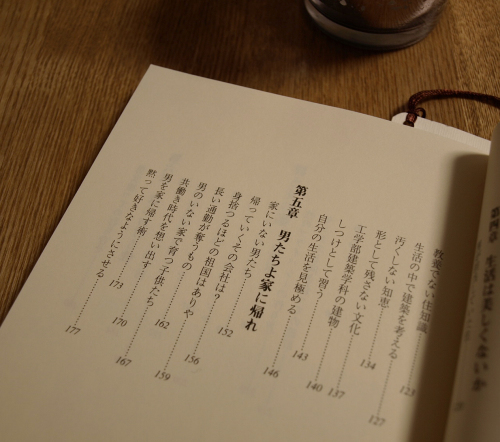 第四章 生活は美しくないか
教養でない住知識 123
生活の中で建築を考える 127
汚くしない知恵 134
形として残さない文化 137
工学部建築学科の建物 140
しつけとして習う 143
自分の生活を見極める 146
第五章 男たちよ家に帰れ
家にいない男たち 152
帰っていくその会社は? 156
身捨つるほどの祖国はありや 159
長い通勤が奪うもの 162
男のいない家で育つ子供たち 167
共働き時代を想い出す 170
男を家に帰す術 173
黙って好きなようにさせる 177